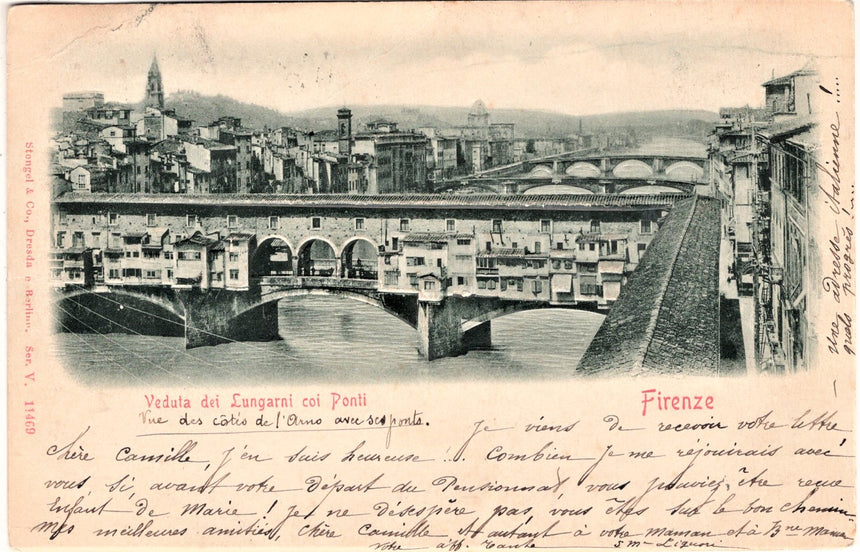 Stengel & Co., Dresda e Berlino. Ser. V. 11469
Veduta dei Lungarni coi Ponti
Firenze
Vue des côtés de l'Arno avec ses ponts.
Je viens de recevoir votre lettre
chère Camille, j'en suis heureuse !.. Combien je me réjouirais avec
vous, si, avant votre départ du Pensionnat vous pouviez être reçue
Enfant de Marie ! Je ne désespère pas, vous êtes sur le bon chemin
Mes meilleures amitiés, chère Camille et autant à votre Maman et à Bne Maman
votre aff. Tante
une adresse italienne !....
quels progrès !....